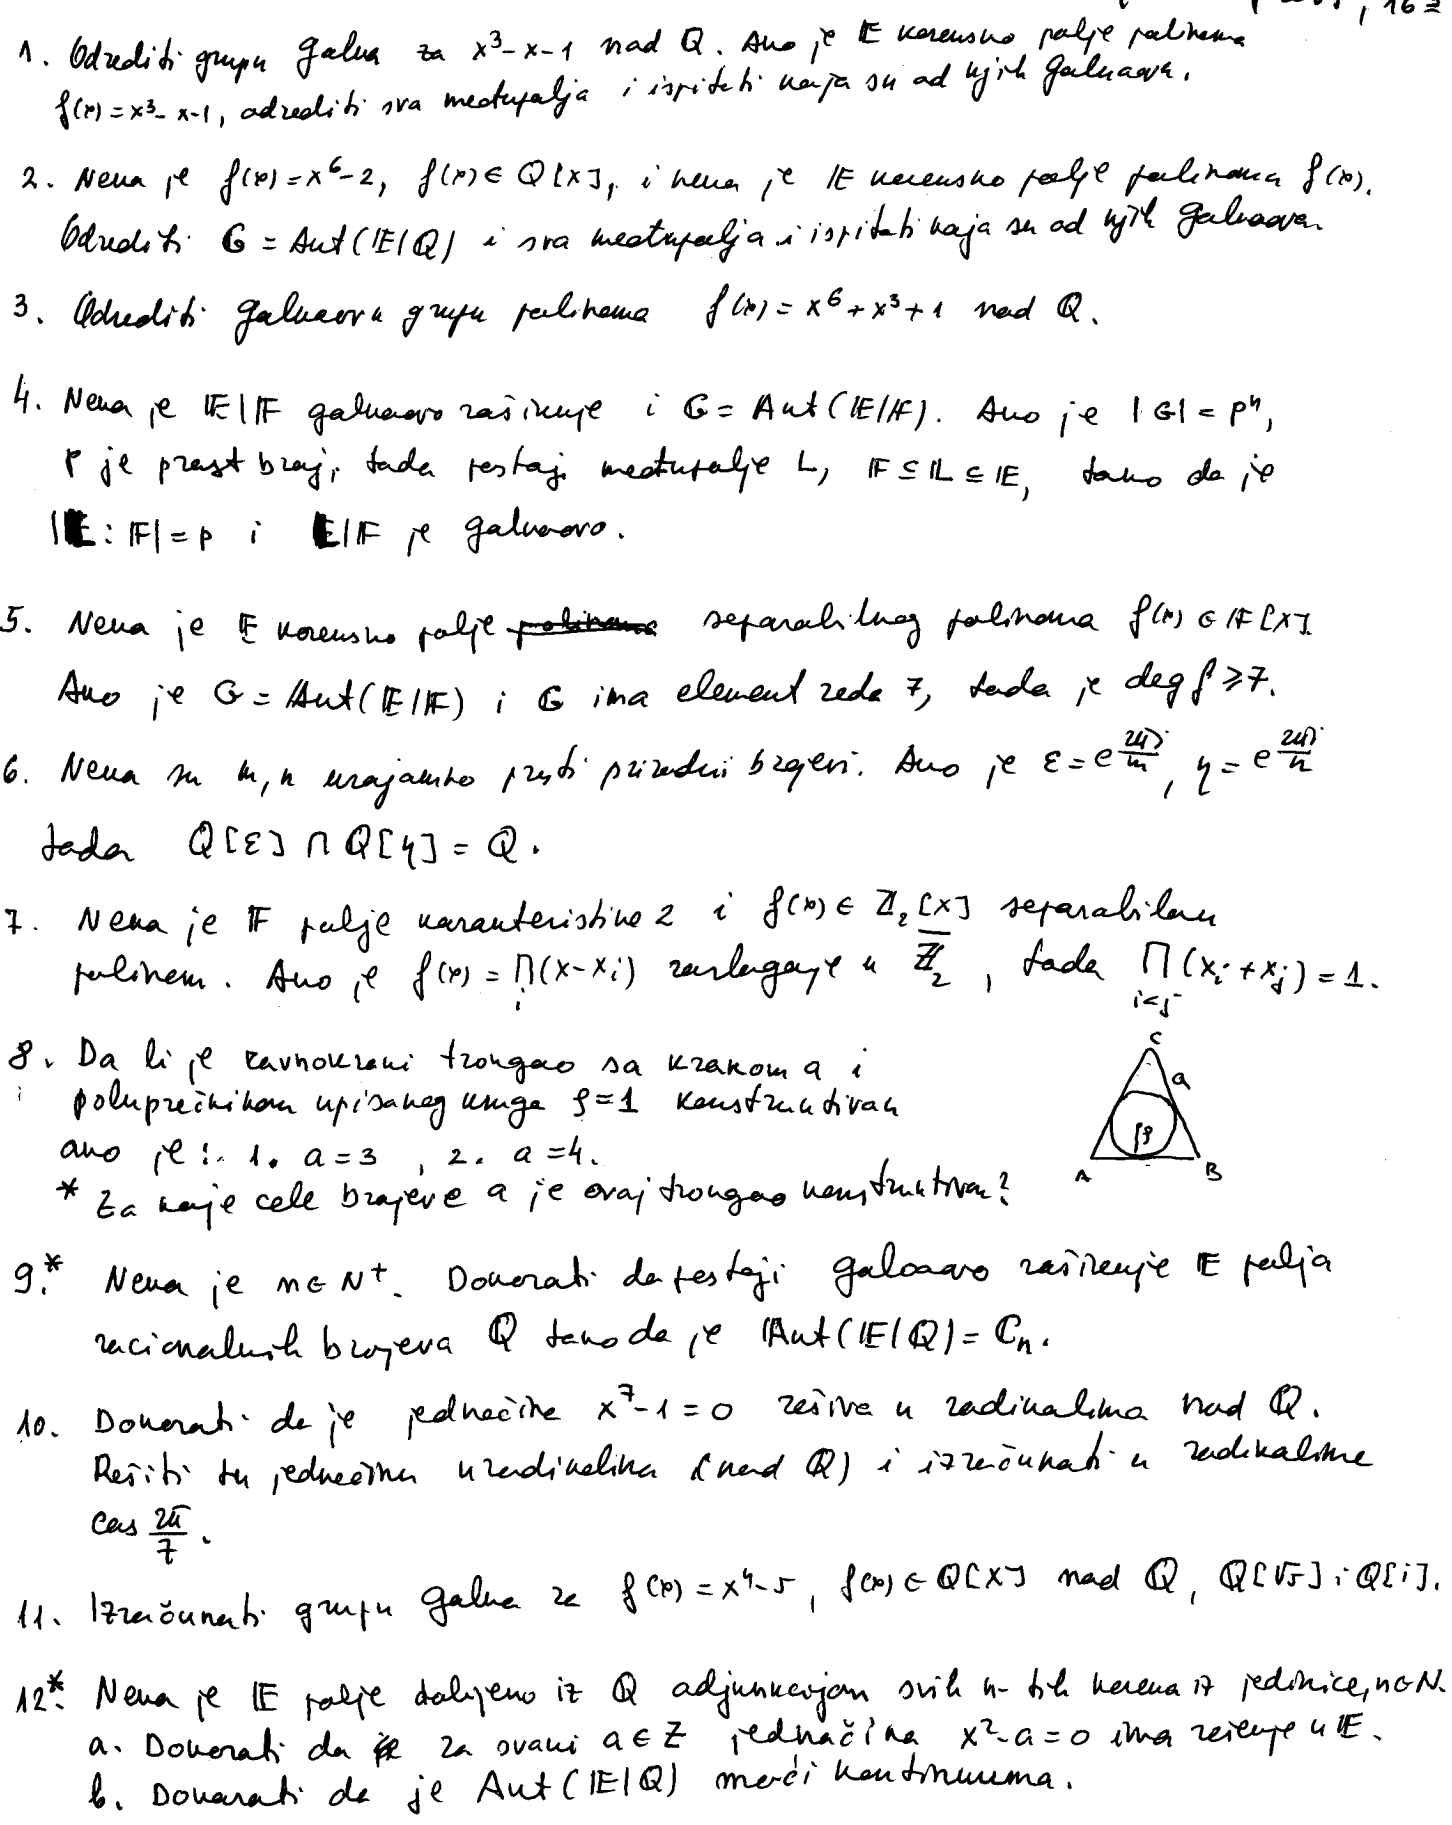 162
1. Odrediti grupu Galua za x³-x-1 nad Q. Ako je E korensko polje polinoma
f(x) = x³-x-1, odrediti sva međupolja i ispitati koja su od njih Galuaova.
2. Neka je f(x) = x⁶-2, f(x) ∈ Q[x], i neka je E korensko polje polinoma f(x).
Odrediti G = Aut(E|Q) i sva međupolja i ispitati koja su od njih Galuaova.
3. Odrediti Galuaovu grupu polinoma f(x) = x⁶+x³+1 nad Q.
4. Neka je E|F galuaovo raširenje i G = Aut(E|F). Ako je |G| = pⁿ,
p je prost broj, tada postoji međupolje L, F ⊆ L ⊆ E, tako da je
|E:F| = p i E|F je galuaovo.
5. Neka je E korensko polje polinoma separabilnog polinoma f(x) ∈ F[x].
Ako je G = Aut(E|F) i G ima element reda 7, tada je deg f ≥ 7.
6. Neka su m, n uzajamno prosti prirodni brojevi. Ako je ε = e^{2πi/m}, η = e^{2πi/n}
tada Q[ε] ∩ Q[η] = Q.
7. Neka je F polje karakteristike 2 i f(x) ∈ Z₂[x] separabilan
polinom. Ako je f(x) = ∏_i (x-x_i) razlaganje u Z̄₂, tada ∏_{i<j} (x_i + x_j) = 1.
8. Da li je ravnokraki trougao sa krakom a i
poluprečnikom upisanog kruga ρ=1 konstruktivan
ako je: 1. a=3, 2. a=4.
* Za koje cele brojeve a je ovaj trougao konstruktivan?
C
a
ρ
A B
9.* Neka je n ∈ N⁺. Dokazati da postoji galoaovo raširenje E polja
racionalnih brojeva Q tako da je Aut(E|Q) = Cₙ.
10. Dokazati da je jednačina x⁷-1=0 rešiva u radikalima nad Q.
Rešiti tu jednačinu u radikalima (nad Q) i izračunati u radikalima
cos 2π/7.
11. Izračunati grupu Galua za f(x) = x⁴-5, f(x) ∈ Q[x] nad Q, Q[√5] i Q[i].
12.* Neka je E polje dobijeno iz Q adjunkcijom svih n-tih korena iz jedinice, n∈N.
a. Dokazati da za svaki a ∈ Z jednačina x²-a=0 ima rešenje u E.
b. Dokazati da je Aut(E|Q) moći kontinuuma.